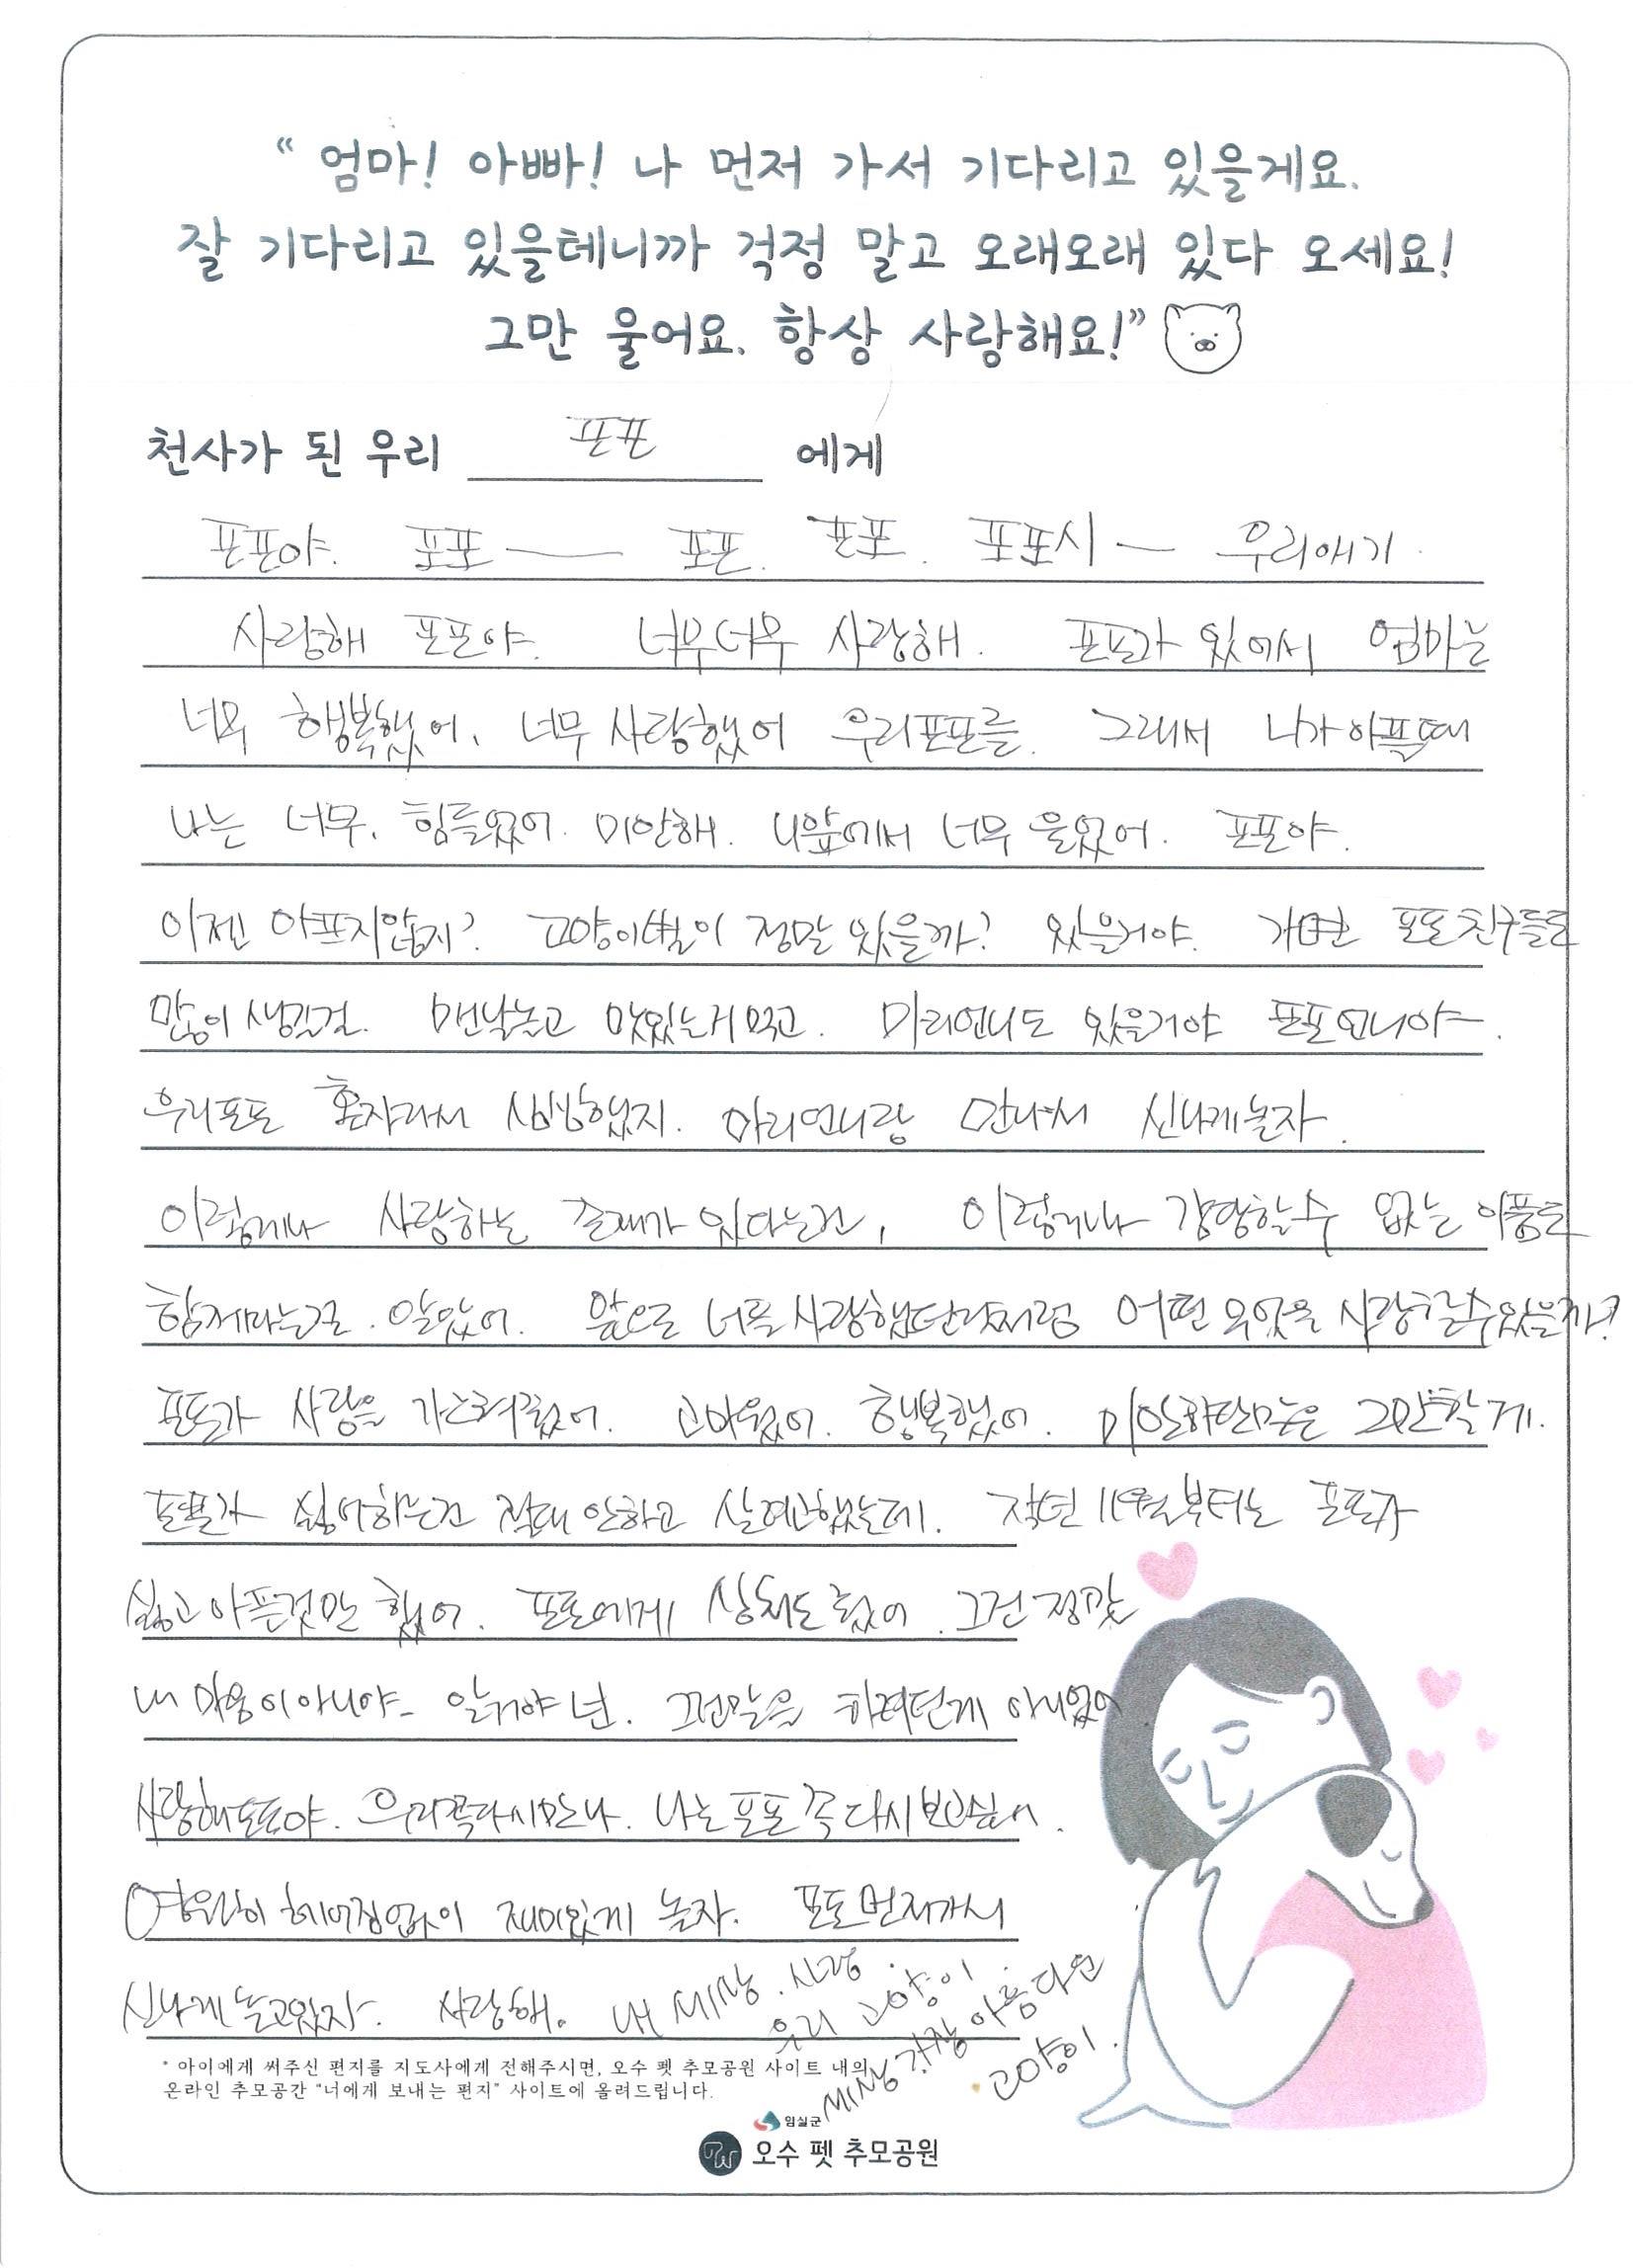 “엄마! 아빠! 나 먼저 가서 기다리고 있을게요.
잘 기다리고 있을테니까 걱정 말고 오래오래 있다 오세요!
그만 울어요. 항상 사랑해요!”
천사가 된 우리 포포 에게
포포야. 포포 — 포포. 포포. 포포시 — 우리애기.
사랑해 포포야. 너무너무 사랑해. 포포가 있어서 엄마는
너무 행복했어. 너무 사랑했어 우리포포를. 그래서 니가 아플때
나는 너무. 힘들었어. 미안해. 니앞에서 너무 울었어. 포포야.
이젠 아프지않지? 고양이별이 정말 있을까? 있을거야. 가면 포포친구들도
많이 생길걸. 맨날놀고 맛있는거먹고. 마리언니도 있을거야 포포언니야.
우리포포 혼자라서 심심했지. 마리언니랑 만나서 신나게놀자.
이렇게나 사랑하는 존재가 있다는건, 이렇게나 감당할수 없는 아픔도
함께라는걸. 알았어. 앞으로 너를 사랑했던것처럼 어떤 무엇을 사랑할수있을까?
포포가 사랑을 가르쳐줬어. 고마웠어. 행복했어. 미안하단말은 그만할게.
포포가 싫어하는건 절대 안하고 살려고했는데. 작년 11월부터는 포포가
싫고 아픈것만 했어. 포포에게 상처도줬어. 그건 정말
내 마음이아니야. 알거야 넌. 그런말을 하려던게 아니었어
사랑해포포야. 우리꼭다시만나. 나는 포포 꼭 다시 보고싶어.
영원히 헤어짐없이 재미있게 놀자. 포포먼저가서
신나게 놀고있자. 사랑해. 내 세상. 사랑.
우리 고양이.
세상 가장 아름다운
고양이.
* 아이에게 써주신 편지를 지도사에게 전해주시면, 오수 펫 추모공원 사이트 내의
온라인 추모공간 “너에게 보내는 편지” 사이트에 올려드립니다.
임실군
오수 펫 추모공원